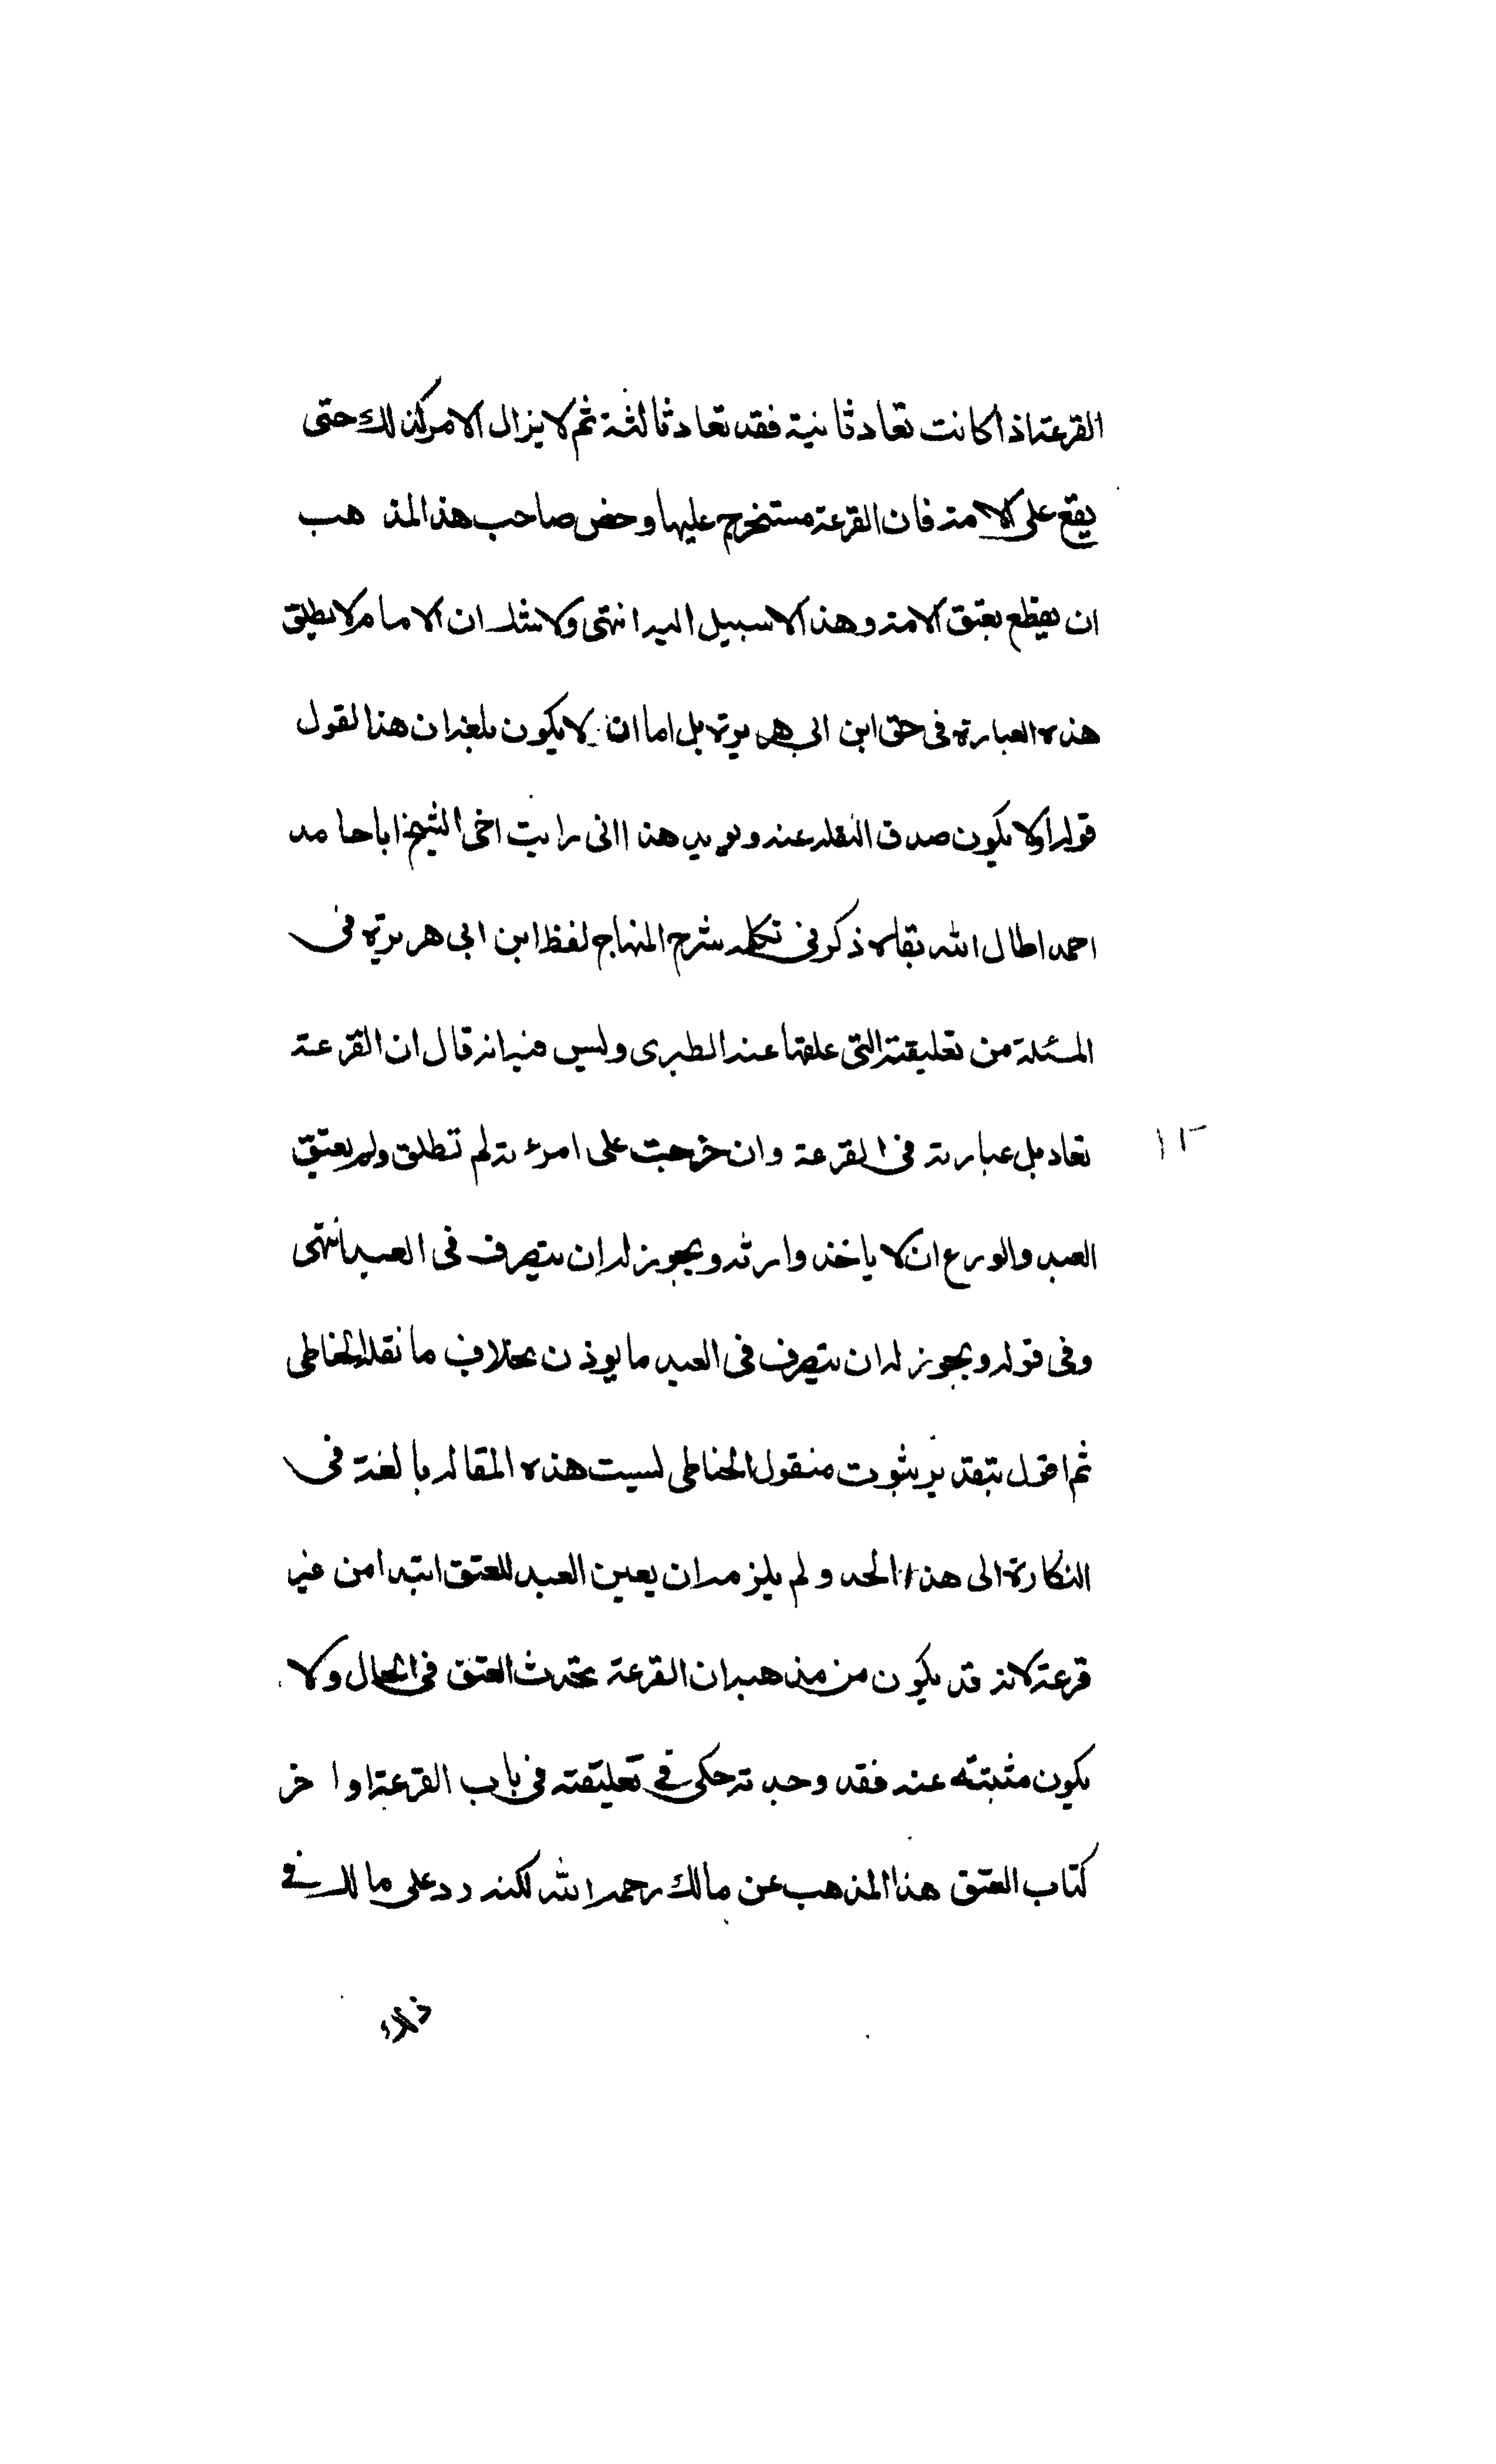 القرعة اذا كانت تعاد ثانية فقد تعاد ثالثة ثم لا يزال الامر كذلك حتى
يقع على الامة فان القرعة مستخرج عليها وحض صاحب هذا المذهب
ان يقطع بعتق الامة وهذا لا سبيل اليه انتهى ولا شك ان الامام لا يطلق
هذه العبارة في حق ابن ابي هريرة بل اما ان لا يكون بلغه ان هذا لقول
قوله اولا يكون صدق النقله عنه ويويد هذا اني رايت اخى الشيخ ابا حامد
احمد اطال الله بقاه ذكر في تكمله شرح المنهاج لفظ ابن ابي هريرة في
المسئلة من تعليقته التي علقها عنه الطبري وليس فيه انه قال ان القرعة
تعاد بل عبارته في القرعة وان خرجت على امرءته لم تطلق ولم يعتق
العبد والورع ان لا ياخذ وارثه ويجوز له ان يتصرف في العبد انتهى
وفي قوله ويجوز له ان يتصرف في العبد ما يوذن بخلاف ما نقله الحناطي
ثم اقول بتقدير ثبوت منقول الحناطي ليست هذه المقاله بالغة في
النكارة الى هذا الحد ولم يلزمه ان يعين العبد للعتق ابتدا من غير
قرعة لانه قد يكون من مذهبه ان القرعة تحدث العتق في الحال ولا
يكون مثبتة عنه فقد وجدته حكى في تعليقته في باب القرعة اواخر
كتاب العتق هذا المذهب عن مالك رحمه الله لكنه رد على مالك في